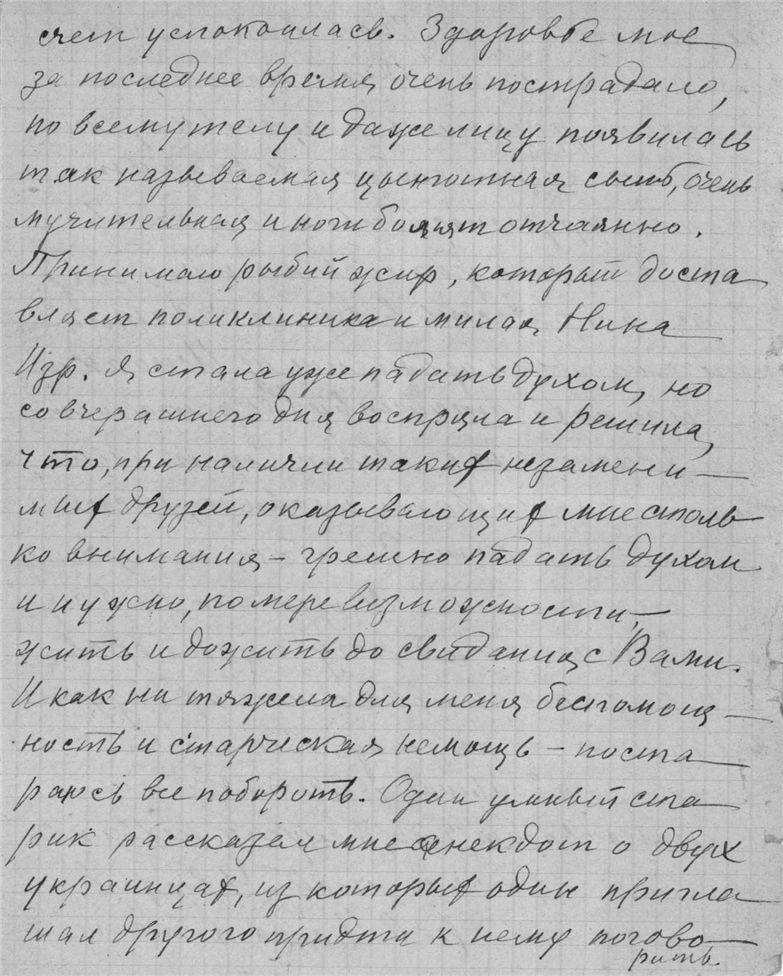 счет успокоилась. Здоровье мое
за последнее время очень пострадало,
по всему телу и даже лицу появилась
так называемая цынготная сыпь, очень
мучительная и ноги болят отчаянно.
Принимаю рыбий жир, который доста
вляет поликлиника и милая Нина
Изр. Я стала уже падать духом, но
со вчерашнего дня воспряла и решила,
что, при наличии таких незамени—
мых друзей, оказывающих мне столь
ко внимания – грешно падать духом
и нужно, по мере возможности,—
жить и дожить до свидания с Вами.
И как ни тяжела для меня беспомощ—
ность и старческая немощь – поста
раюсь все побороть. Один умный ста
рик рассказал мне анекдот о двух
украинцах, из которых один пригла
шал другого придти к нему погово—
рить.